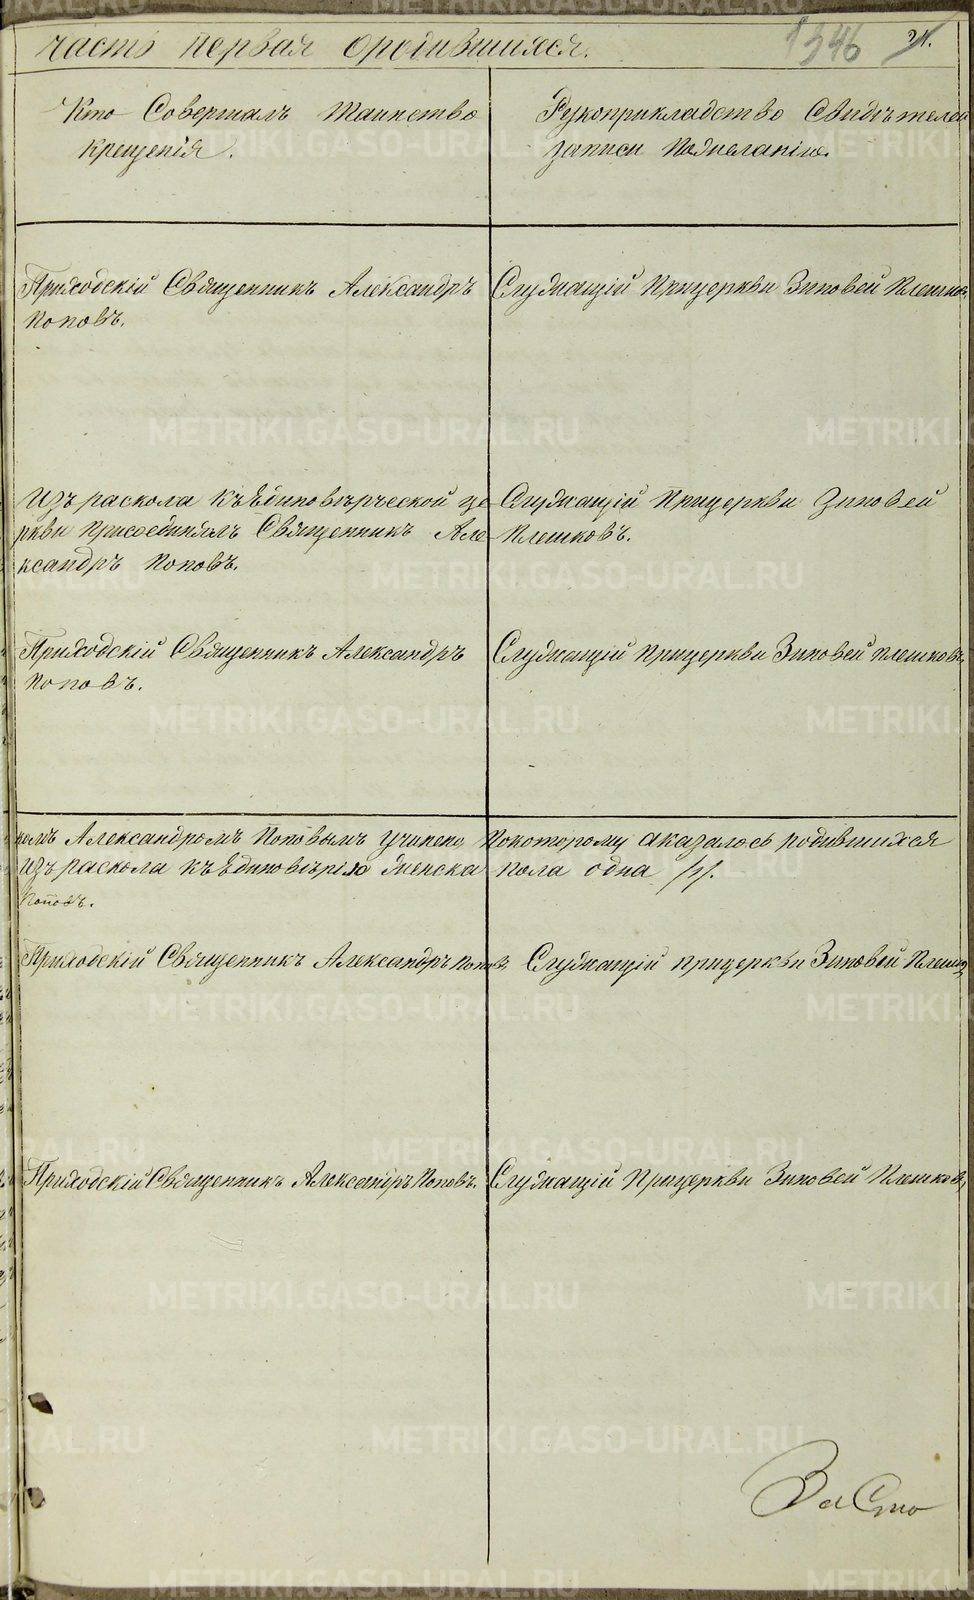 часть первая ородившихся.
1346 21.
Кто Совершалъ Таинство
Крещенія.
Рукоприкладство Свидѣтелей
записи Пожеланію.
Приходскій Священникъ Александръ
Поповъ.
Служащій Прицеркви Зиновей Плешков
Изъ раскола КъЕдиновѣрческой це
ркви присоединялъ Священникъ Але
ксандръ Поповъ.
Служащій Прицеркви Зиновей
Плешковъ.
Приходскій Священникъ Александръ
Поповъ.
Служащій Прицеркви Зиновей Плешковъ,
комъ Александромъ Поповымъ Учинено Покоторому аказалось родившихся
Изъ раскола КъЕдиновѣрію женска пола одна /1/.
Поповъ.
Приходскій Священникъ Александръ Поповъ.
Служащій прицеркви Зиновей Плешко
Приходскій Священникъ Александръ Поповъ.
Служащій Прицеркви Зиновей Плешков,
ЗаСто
METRIKI.GASO-URAL.RU